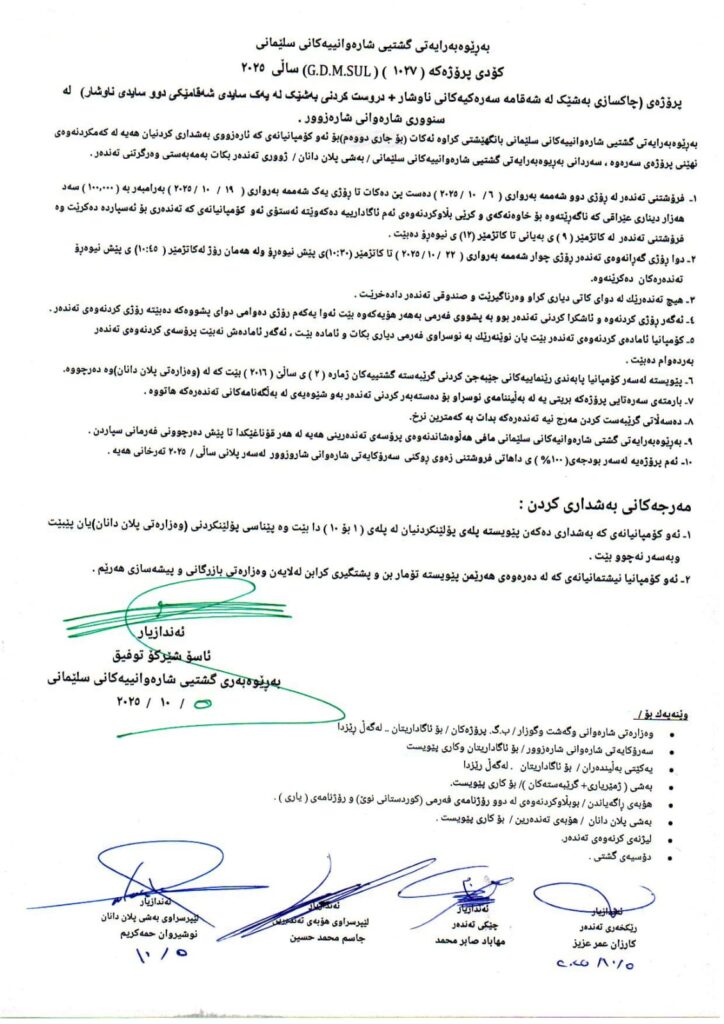 بەڕێوەبەرایەتی گشتیی شارەوانییەکانی سلێمانی
کۆدی پرۆژەکە ( ١٠٢٧ ) ( G.D.M.SUL) ساڵی ٢٠٢٥
پرۆژەی (چاکسازی بەشێک لە شەقامە سەرەکیەکانی ناوشار + دروست کردنی بەشێک لە یەک سایدی شەقامێکی دوو سایدی ناوشار) لە
سنووری شارەوانی شارەزوور .
بەڕێوەبەرایەتی گشتیی شارەوانییەکانی سلێمانی بانگهێشتی کراوە ئەکات (بۆ جاری دووەم)بۆ ئەو کۆمپانیانەی کە ئارەزووی بەشداری کردنیان هەیە لە کەمکردنەوەی
نهێنی پرۆژەی سەرەوە ، سەردانی بەڕێوەبەرایەتی گشتیی شارەوانییەکانی سلێمانی / بەشی پلان دانان / ژووری تەندەر بکات بەمەبەستی وەرگرتنی تەندەر .
١- فرۆشتنی تەندەر لە ڕۆژی دوو شەممە بەرواری ( ٦ / ١٠ / ٢٠٢٥ ) دەست پێ دەکات تا ڕۆژی یەک شەممە بەرواری ( ١٩ / ١٠ / ٢٠٢٥ ) بەرامبەر بە (١٠٠,٠٠٠) سەد
هەزار دیناری عێراقی کە ناگەڕێتەوە بۆ خاوەنەکەی و کرێی بڵاوکردنەوەی ئەم ئاگادارییە دەکەوێتە ئەستۆی ئەو کۆمپانیانەی کە تەندەری بۆ ئەسپاردە دەکرێت وە
فرۆشتنی تەندەر لە کاتژمێر ( ٩ ) ی بەیانی تا کاتژمێر (١٢) ی نیوەڕۆ دەبێت .
٢- دوا ڕۆژی گەڕانەوەی تەندەر ڕۆژی چوار شەممە بەرواری ( ٢٢ / ١٠ / ٢٠٢٥ ) تا کاتژمێر (١٠:٣٠)ی پێش نیوەڕۆ ولە هەمان رۆژ لەکاتژمێر (١٠:٤٥) ی پێش نیوەڕۆ
تەندەرەکان دەکرێنەوە.
٣- هیچ تەندەرێك لە دوای کاتی دیاری کراو وەرناگیرێت و صندوقی تەندەر دادەخرێت .
٤- ئەگەر ڕۆژی کردنەوە و ئاشکرا کردنی تەندەر بوو بە پشووی فەرمی بەهەر هۆیەکەوە بێت ئەوا یەکەم رۆژی دەوامی دوای پشووەکە دەبێتە رۆژی کردنەوەی تەندەر .
٥- کۆمپانیا ئامادەی کردنەوەی تەندەر بێت یان نوێنەرێك بە نوسراوی فەرمی دیاری بکات و ئامادە بێت ، ئەگەر ئامادەش نەبێت پرۆسەی کردنەوەی تەندەر
بەردەوام دەبێت .
٦- پێویستە لەسەر کۆمپانیا پابەندی رێنماییەکانی جێبەجێ کردنی گرێبەستە گشتییەکان ژمارە ( ٢ ) ی ساڵێ ( ٢٠١٦ ) بێت کە لە (وەزارەتی پلان دانان)وە دەرچووە.
٧- بارمتەی سەرەتایی پرۆژەکە بریتی یە لە بەڵێننامەی نوسراو بۆ دەستەبەر کردنی تەندەر بەو شێوەیەی لە بەڵگەنامەکانی تەندەرەکە هاتووە .
٨- دەسەڵاتی گرێبەست کردن مەرج نیە تەندەرەکە بدات بە کەمترین نرخ.
٩- بەڕێوەبەرایەتی گشتی شارەوانیەکانی سلێمانی مافی هەڵوەشاندنەوەی پرۆسەی تەندەرینی هەیە لە هەر قۆناغێکدا تا پێش دەرچوونی فەرمانی سپاردن .
١٠- ئەم پرۆژەیە لەسەر بودجەی( ١٠٠% ) ی داهاتی فرۆشتنی زەوی ڕوکنی سەرۆکایەتی شارەوانی شاروزوور لەسەر پلانی ساڵی / ٢٠٢٥ تەرخانی هەیە .
مەرجەکانی بەشداری کردن :
١- ئەو کۆمپانیانەی کە بەشداری دەکەن پێویستە پلەی پۆلێنکردنیان لە پلەی ( ١ بۆ ١٠ ) دا بێت وە پێناسی پۆلێنکردنی (وەزارەتی پلان دانان)یان پێبێت
وبەسەر نەچوو بێت .
٢- ئەو کۆمپانیا نیشتمانیانەی کە لە دەرەوەی هەرێمن پێویستە تۆمار بن و پشتگیری کرابن لەلایەن وەزارەتی بازرگانی و پیشەسازی هەرێم .
ئەندازیار
ئاسۆ شێرکۆ توفیق
بەڕێوەبەری گشتیی شارەوانییەکانی سلێمانی
٥ / ١٠ / ٢٠٢٥
وێنەیەك بۆ /
وەزارەتی شارەوانی وگەشت وگوزار / ب.گ. پرۆژەکان / بۆ ئاگاداریتان .. لەگەڵ ڕێزدا
سەرۆکایەتی شارەوانی شارەزوور / بۆ ئاگاداریتان وکاری پێویست
یەکێتی بەڵێندەران / بۆ ئاگاداریتان . لەگەڵ رێزدا
بەشی ( ژمێریاری+ گرێبەستەکان )/ بۆ کاری پێویست.
هۆبەی ڕاگەیاندن / بوبڵاوکردنەوەی لە دوو رۆژنامەی فەرمی (کوردستانی نوێ) و رۆژنامەی ( یاری ) .
بەشی پلان دانان / هۆبەی تەندەرین / بۆ کاری پێویست .
لیژنەی کرنەوەی تەندەر.
دۆسیەی گشتی .
ئەندازیار
رێکخەری تەندەر
کارزان عمر عزیز
٢٠٢٥/١٠/٥
ئەندازیار
چێکی تەندەر
مهاباد صابر محمد
ئەندازیار
لێپرسراوی هۆبەی تەندەرین
جاسم محمد حسین
ئەندازیار
لێپرسراوی بەشی پلان دانان
نوشیروان حمەکریم
١٠/٥